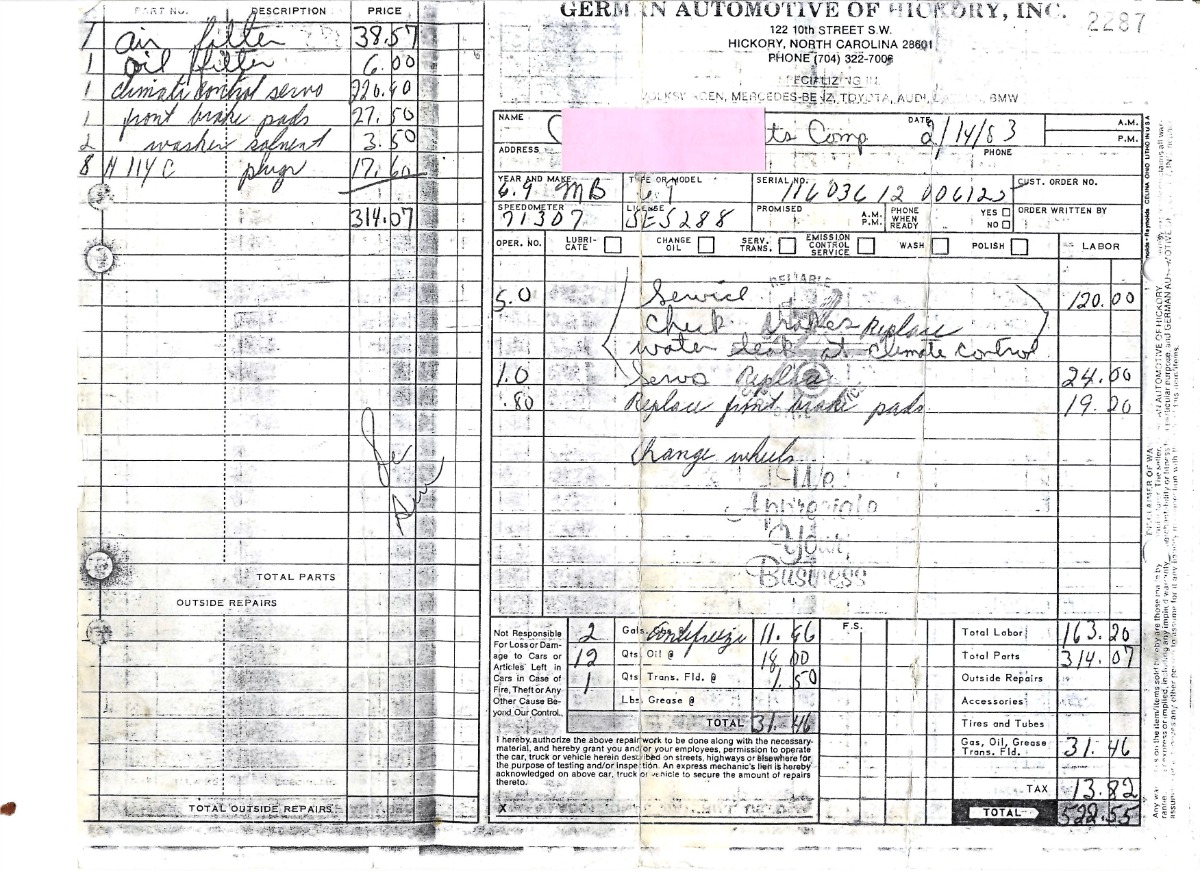 PART NO. DESCRIPTION PRICE
1 air filter 38.57
1 oil filter 6.00
1 climate control servo 220.90
1 front brake pads 27.50
2 washer solvent 3.50
8 H 114 C plugs 17.60
314.07
TOTAL PARTS
OUTSIDE REPAIRS
TOTAL OUTSIDE REPAIRS
GERMAN AUTOMOTIVE OF HICKORY, INC. 2287
122 10th STREET S.W.
HICKORY, NORTH CAROLINA 28601
PHONE (704) 322-7006
SPECIALIZING IN
VOLKSWAGEN, MERCEDES-BENZ, TOYOTA, AUDI, BMW
NAME ts Comp DATE 2/14/83 A.M.
P.M.
ADDRESS PHONE
YEAR AND MAKE 6.9 MB TYPE OR MODEL 6.9 SERIAL NO. 11603612006125 CUST. ORDER NO.
SPEEDOMETER 71307 LICENSE SES288 PROMISED A.M. P.M. PHONE WHEN READY YES NO ORDER WRITTEN BY
OPER. NO. LUBRICATE CHANGE OIL SERV. TRANS. EMISSION CONTROL SERVICE WASH POLISH LABOR
RELIABLE
5.0 Service 120.00
Check brakes Replace
water leak at climate control
1.0 Servo Replace 24.00
.80 Replace front brake pads 19.20
change wheels
We
Appreciate
Your
Business
Not Responsible
For Loss or Dam-
age to Cars or
Articles Left in
Cars in Case of
Fire, Theft or Any
Other Cause Be-
yond Our Control.
2 Gals. antifreeze 11.96
12 Qts. Oil @ 18.00
1 Qts. Trans. Fld. @ 1.50
Lbs. Grease @
TOTAL 31.46
F.S.
I hereby authorize the above repair work to be done along with the necessary
material, and hereby grant you and/or your employees, permission to operate
the car, truck or vehicle herein described on streets, highways or elsewhere for
the purpose of testing and/or inspection. An express mechanic's lien is hereby
acknowledged on above car, truck or vehicle to secure the amount of repairs
thereto.
X
Total Labor 163.20
Total Parts 314.07
Outside Repairs
Accessories
Tires and Tubes
Gas, Oil, Grease
Trans. Fld. 31.46
TAX 13.82
TOTAL 522.55